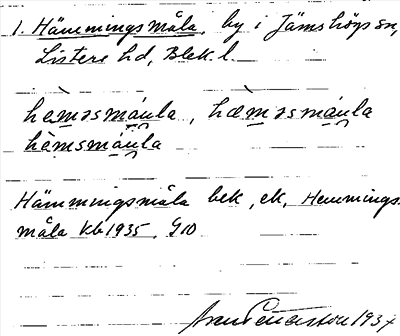 1. Hämmingsmåla, by i Jämshögs sn,
Listers hd, Blek. l.
hèməsmáu̯la, hæ̀məsmáu̯la
hèmsmáu̯la
Hämmingsmåla bek, ek, Hemmings-
måla kb 1935, G10
Pettersson 1937